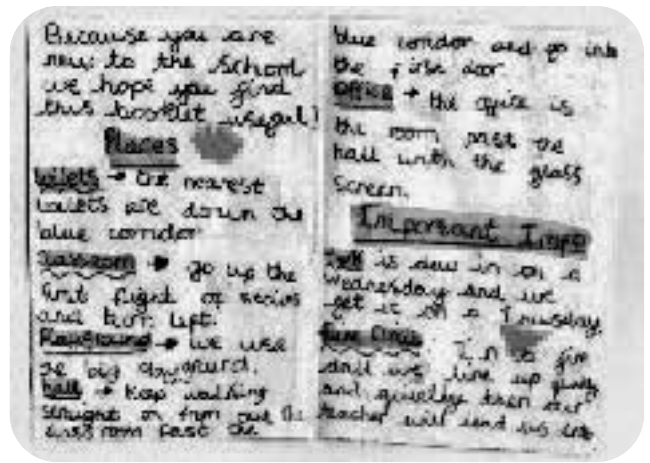 Because you are
new to the school
we hope you find
this booklet useful!
Places
toilets → the nearest
toilets are down the
blue corridor
Classroom → go up the
first flight of
and turn left.
Playground → we use
the big playground.
hall → keep walking
straight on from our
past the
blue corridor and go into
the first door
Office → the office is
the room past the
hall with the glass
screen.
Important Info
is due in on a
Wednesday and we
get it on a Thursday.
Fire Drills In a fire
drill we line up
and quietly then our
teacher will send us into